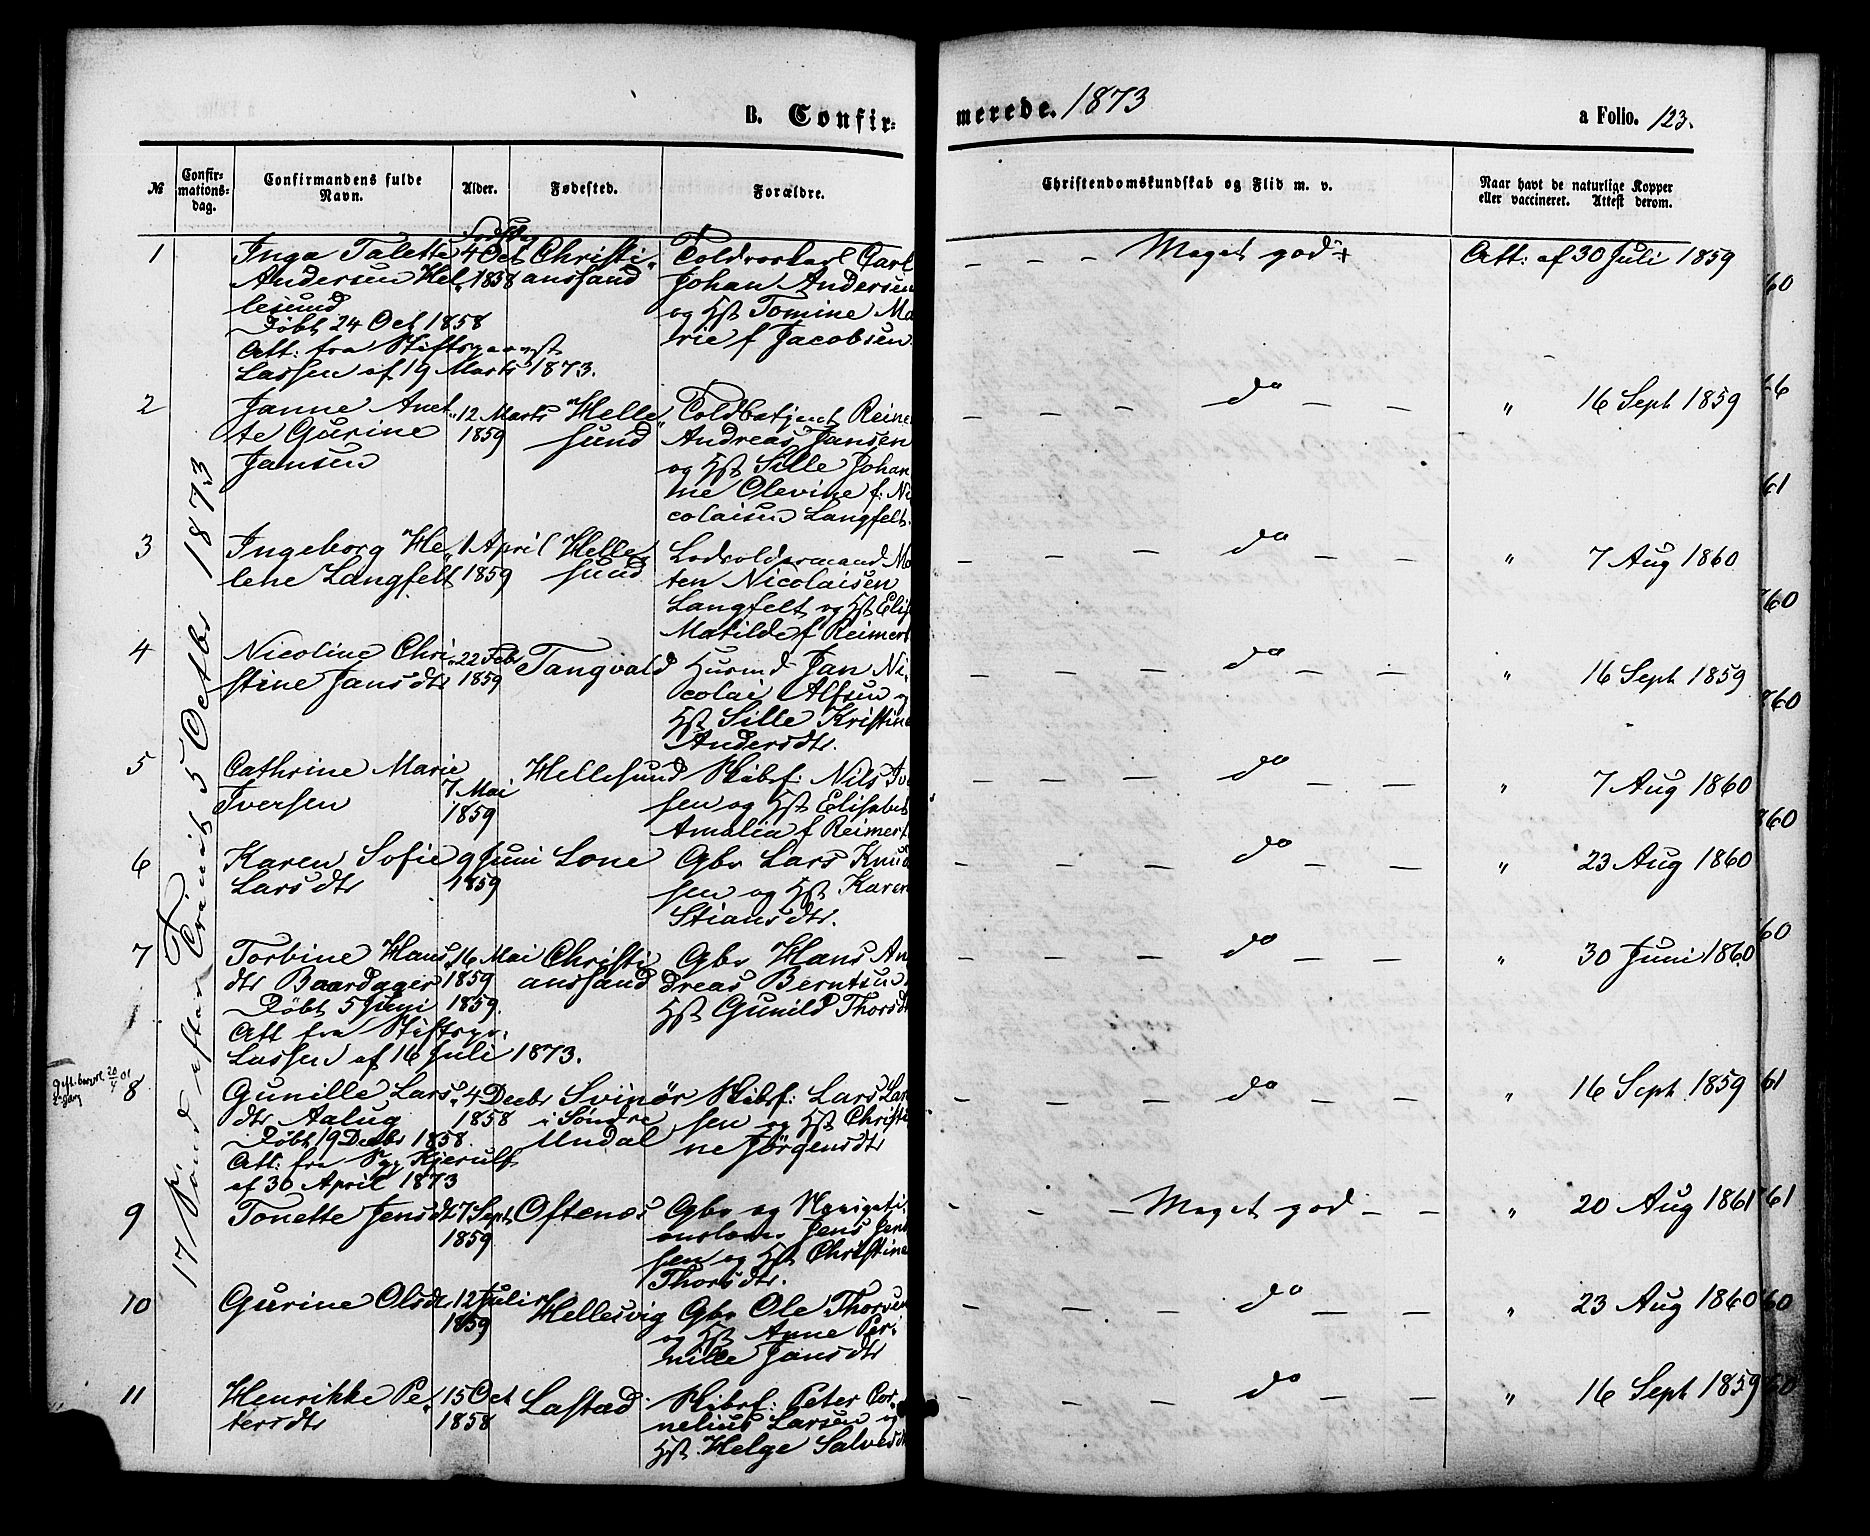 B. Confir-
merede. 1873
a Folio. 123.
№
Confir-
mations-
dag.
Confirmandens fulde
Navn.
Alder.
Fødested.
Forældre.
Christendomskundskab og Flid m. v.
Naar havt de naturlige Kopper
eller vaccineret. Attest derom.
17 Sønd efter Trinit 5 Octbr 1873
1
Inga Talette
Andersen Hel
lesund
Døbt 24 Oct 1858
Att: fra Stiftsprovst
Lassen af 19 Marts 1873.
Født
4 Oct
1858
Christi
anssand
Toldroskarl Carl
Johan Andersen
og Hst Tomine Ma
rie f Jacobsen
— — — Meget god +
Att: af 30 Juli 1859
2
Janne Anet
te Gurine
Jansen
12 Marts
1859
Helle
sund
Toldbetjent Reine
Andreas Jansen
og Hst Sille Johan
ne Olevine f: Ni
colaisen Langfelt.
— — — do — —
" 16 Sept 1859
3
Ingeborg He
lene Langfelt
1 April
1859
Helle
sund
Lodsoldermand Mo
ten Nicolaisen
Langfelt og Hst Elis
Matilde f Reimert
— — — do — —
" 7 Aug 1860
4
Nicoline Chri
stine Jansdtr
22 Feb
1859
Tangvald
Husmd Jan Ni
colai Alfsen og
Hst Sille Kristine
Andersdtr.
— — — do — —
" 16 Sept 1859
5
Cathrine Marie
Iversen
7 Mai
1859
Hellesund
Skibsf: Nils Iver
sen og Hst Elisabet
Amalia f Reimert
— — — do — —
" 7 Aug 1860
6
Karen Sofie
Larsdtr
9 Juni
1859
Lone
Gbr Lars Knud
sen og Hst Karen
Stiansdtr.
— — — do — —
" 23 Aug 1860
7
Torbine Hans
dtr Baardager
Døbt 5 Juni 1859.
Att fra Stiftspr.
Lassen af 16 Juli 1873.
16 Mai
1859
Christi
anssand
Gbr Hans An
dreas Berntsen
Hst Gunild Thorsdt
— — — do — —
" 30 Juni 1860
8
Gunille Lars
dtr Aalug
Døbt 19 Decbr 1858.
Att: fra Spr Kjerulf
af 30 April 1873
4 Decbr
1858
Svinør
i Søndre
Undal
Skibsf: Lars Lar
sen og Hst Christi
ne Jörgensdtr
— — — do — —
" 16 Sept 1859
9
Tonette Jensdt
27 Sept
1859
Oftenæs
Gbr og Navigati
onslærer Jens Jent
sen og Hst Christine
Thorsdtr.
— — — Meget god — —
" 20 Aug 1861
10
Gurine Olsdt
12 Juli
1859
Hellesvig
Gbr Ole Thorsen
og Hst Anne Per
nille Jansdtr
— — — do — —
" 23 Aug 1860
11
Henrikke Pe
tersdtr
15 Oct
1858
Lastad
Skibsf: Peter Cor
nelius Larsen og
Hst Helge Salvesdt
— — — do — —
" 16 Sept 1859
60
66
61
860
860
860
60
61
861
60
60